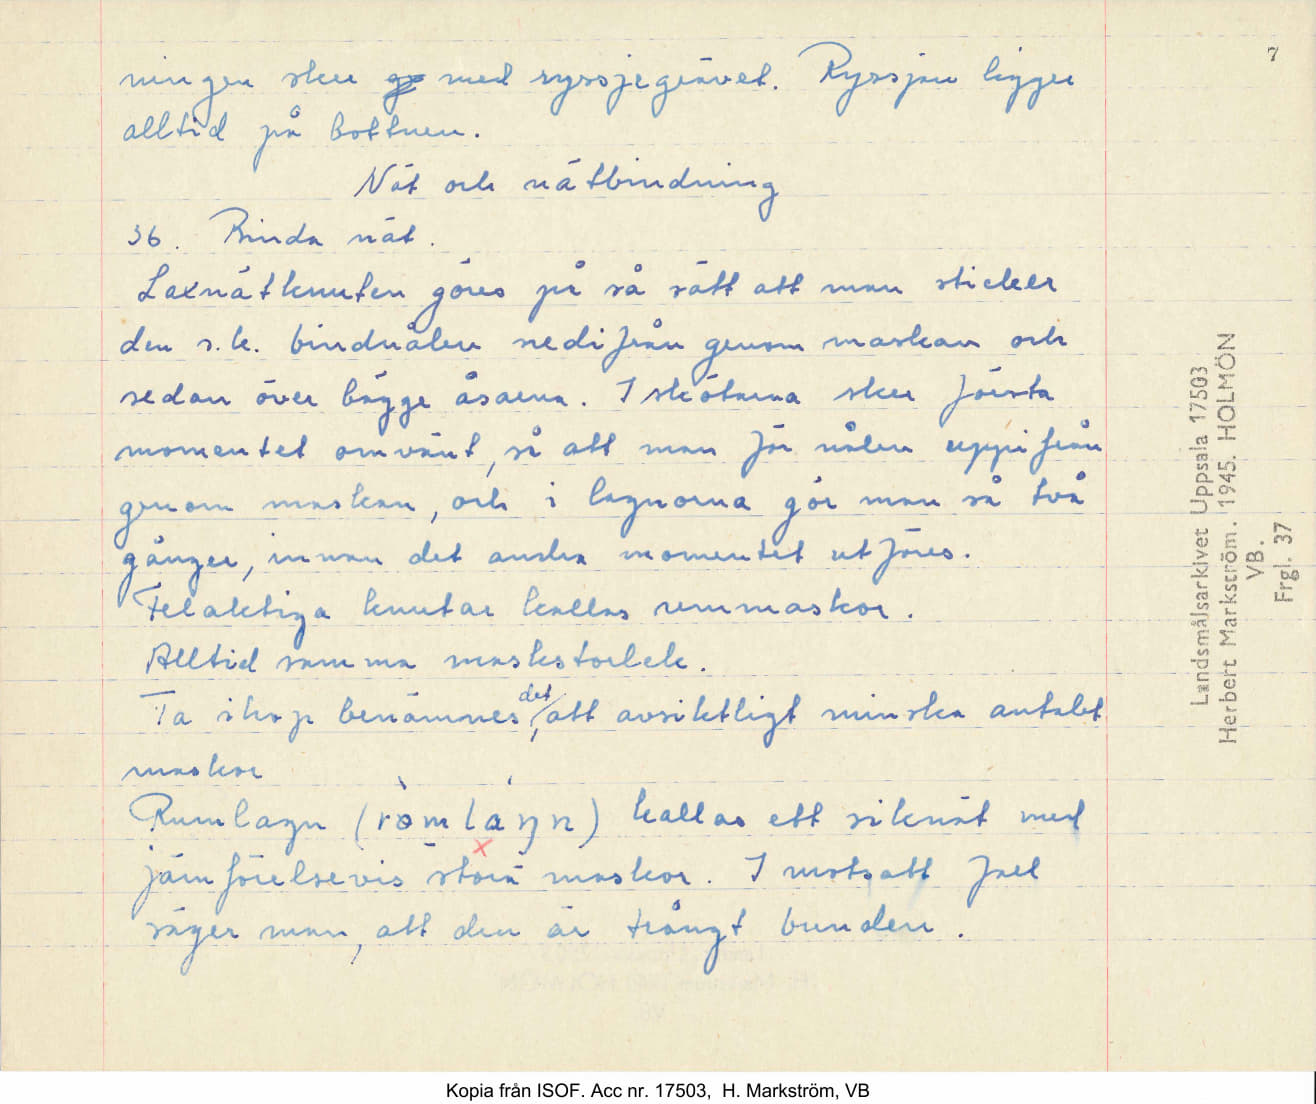 7
ningen sker med ryssjegrävet. Ryssjan ligger
alltid på bottnen.
Nät och nätbindning
36. Binda nät.
Laxnätknuten göres på så sätt att man sticker
den s.k. bindnålen nedifrån genom maskan och
sedan över bägge åsarna. I skötarna sker första
momentet omvänt, så att man för nålen uppifrån
genom maskan, och i lagnorna gör man så två
gånger, innan det andra momentet utföres.
Felaktiga knutar kallas rennmaskor.
Alltid samma maskstorlek.
Ta ihop benämnes det, att avsiktligt minska antalet
maskor
Rumlagn (ròmláŋn) kallas ett siknät med
jämförelsevis stora maskor. I motsatt fall
säger man, att den är trångt bunden.
Landsmålsarkivet Uppsala 17503
Herbert Markström. 1945. HOLMÖN
VB.
Frgl. 37
Kopia från ISOF. Acc nr. 17503, H. Markström, VB